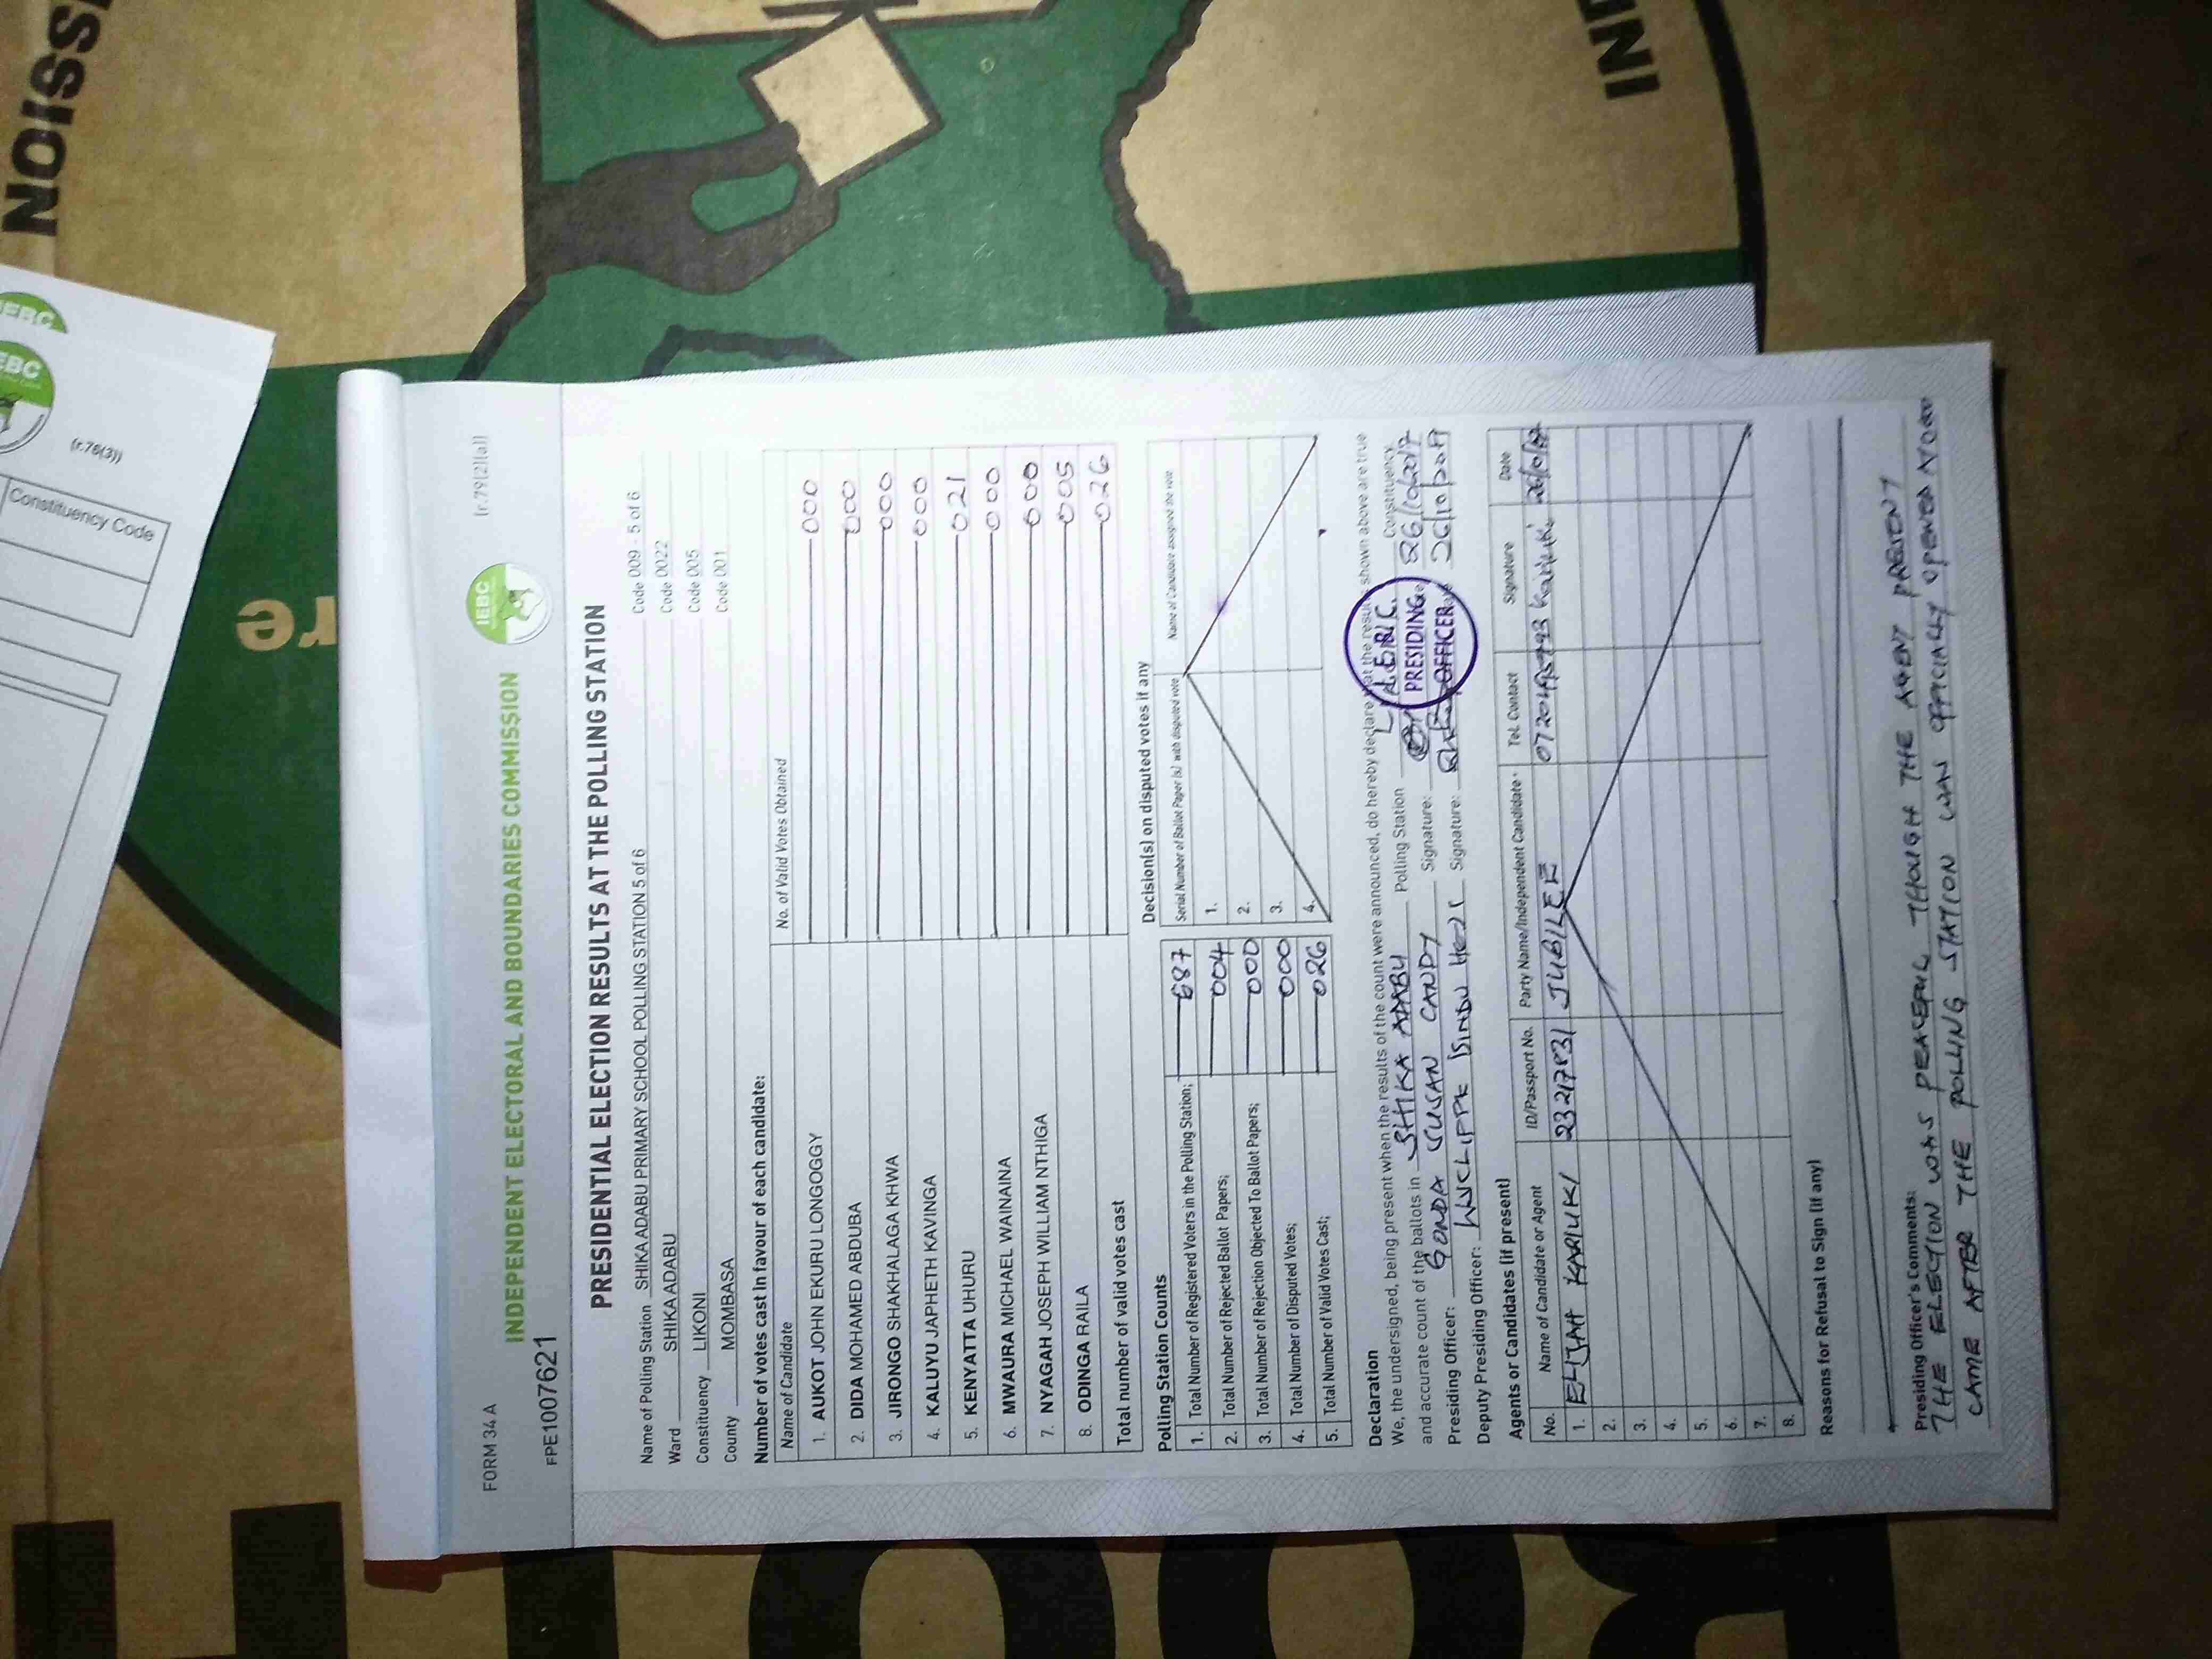 FORM 34 A
(r.79(2)(a))
INDEPENDENT ELECTORAL AND BOUNDARIES COMMISSION
IEBC
FPE1007621
PRESIDENTIAL ELECTION RESULTS AT THE POLLING STATION
Name of Polling Station SHIKA ADABU PRIMARY SCHOOL POLLING STATION 5 of 6 Code 009 - 5 of 6
Ward SHIKA ADABU Code 0022
Constituency LIKONI Code 005
County MOMBASA Code 001
Number of votes cast in favour of each candidate:
Name of Candidate No. of Valid Votes Obtained
1. AUKOT JOHN EKURU LONGOGGY 000
2. DIDA MOHAMED ABDUBA 000
3. JIRONGO SHAKHALAGA KHWA 000
4. KALUYU JAPHETH KAVINGA 000
5. KENYATTA UHURU 021
6. MWAURA MICHAEL WAINAINA 000
7. NYAGAH JOSEPH WILLIAM NTHIGA 000
8. ODINGA RAILA 005
Total number of valid votes cast 026
Polling Station Counts
1. Total Number of Registered Voters in the Polling Station; 687
2. Total Number of Rejected Ballot Papers; 004
3. Total Number of Rejection Objected To Ballot Papers; 000
4. Total Number of Disputed Votes; 000
5. Total Number of Valid Votes Cast; 026
Decision(s) on disputed votes if any
Serial Number of Ballot Paper (s) with disputed vote Name of Candidate assigned the vote
1.
2.
3.
4.
Declaration
We, the undersigned, being present when the results of the count were announced, do hereby declare that the results shown above are true
and accurate count of the ballots in SHIKA ADABU Polling Station Constituency.
Presiding Officer: GONDA SUSAN CANDY Signature: 26/10/2017
Deputy Presiding Officer: Signature: 26/10/2017
I.E.B.C.
PRESIDING
OFFICER
Agents or Candidates (if present)
No. Name of Candidate or Agent ID/Passport No. Party Name/Independent Candidate Tel. Contact Signature Date
1. ELIJAH KARIUKI JUBILEE Kariuki
2.
3.
4.
5.
6.
7.
8.
Reasons for Refusal to Sign (if any)
Presiding Officer's Comments:
THE ELECTION WAS PEACEFUL THOUGH THE AGENT PRESENT
CAME AFTER THE POLLING STATION WAS OFFICIALLY OPENED
IEBC
EBC
(r.76(3))
Constituency Code